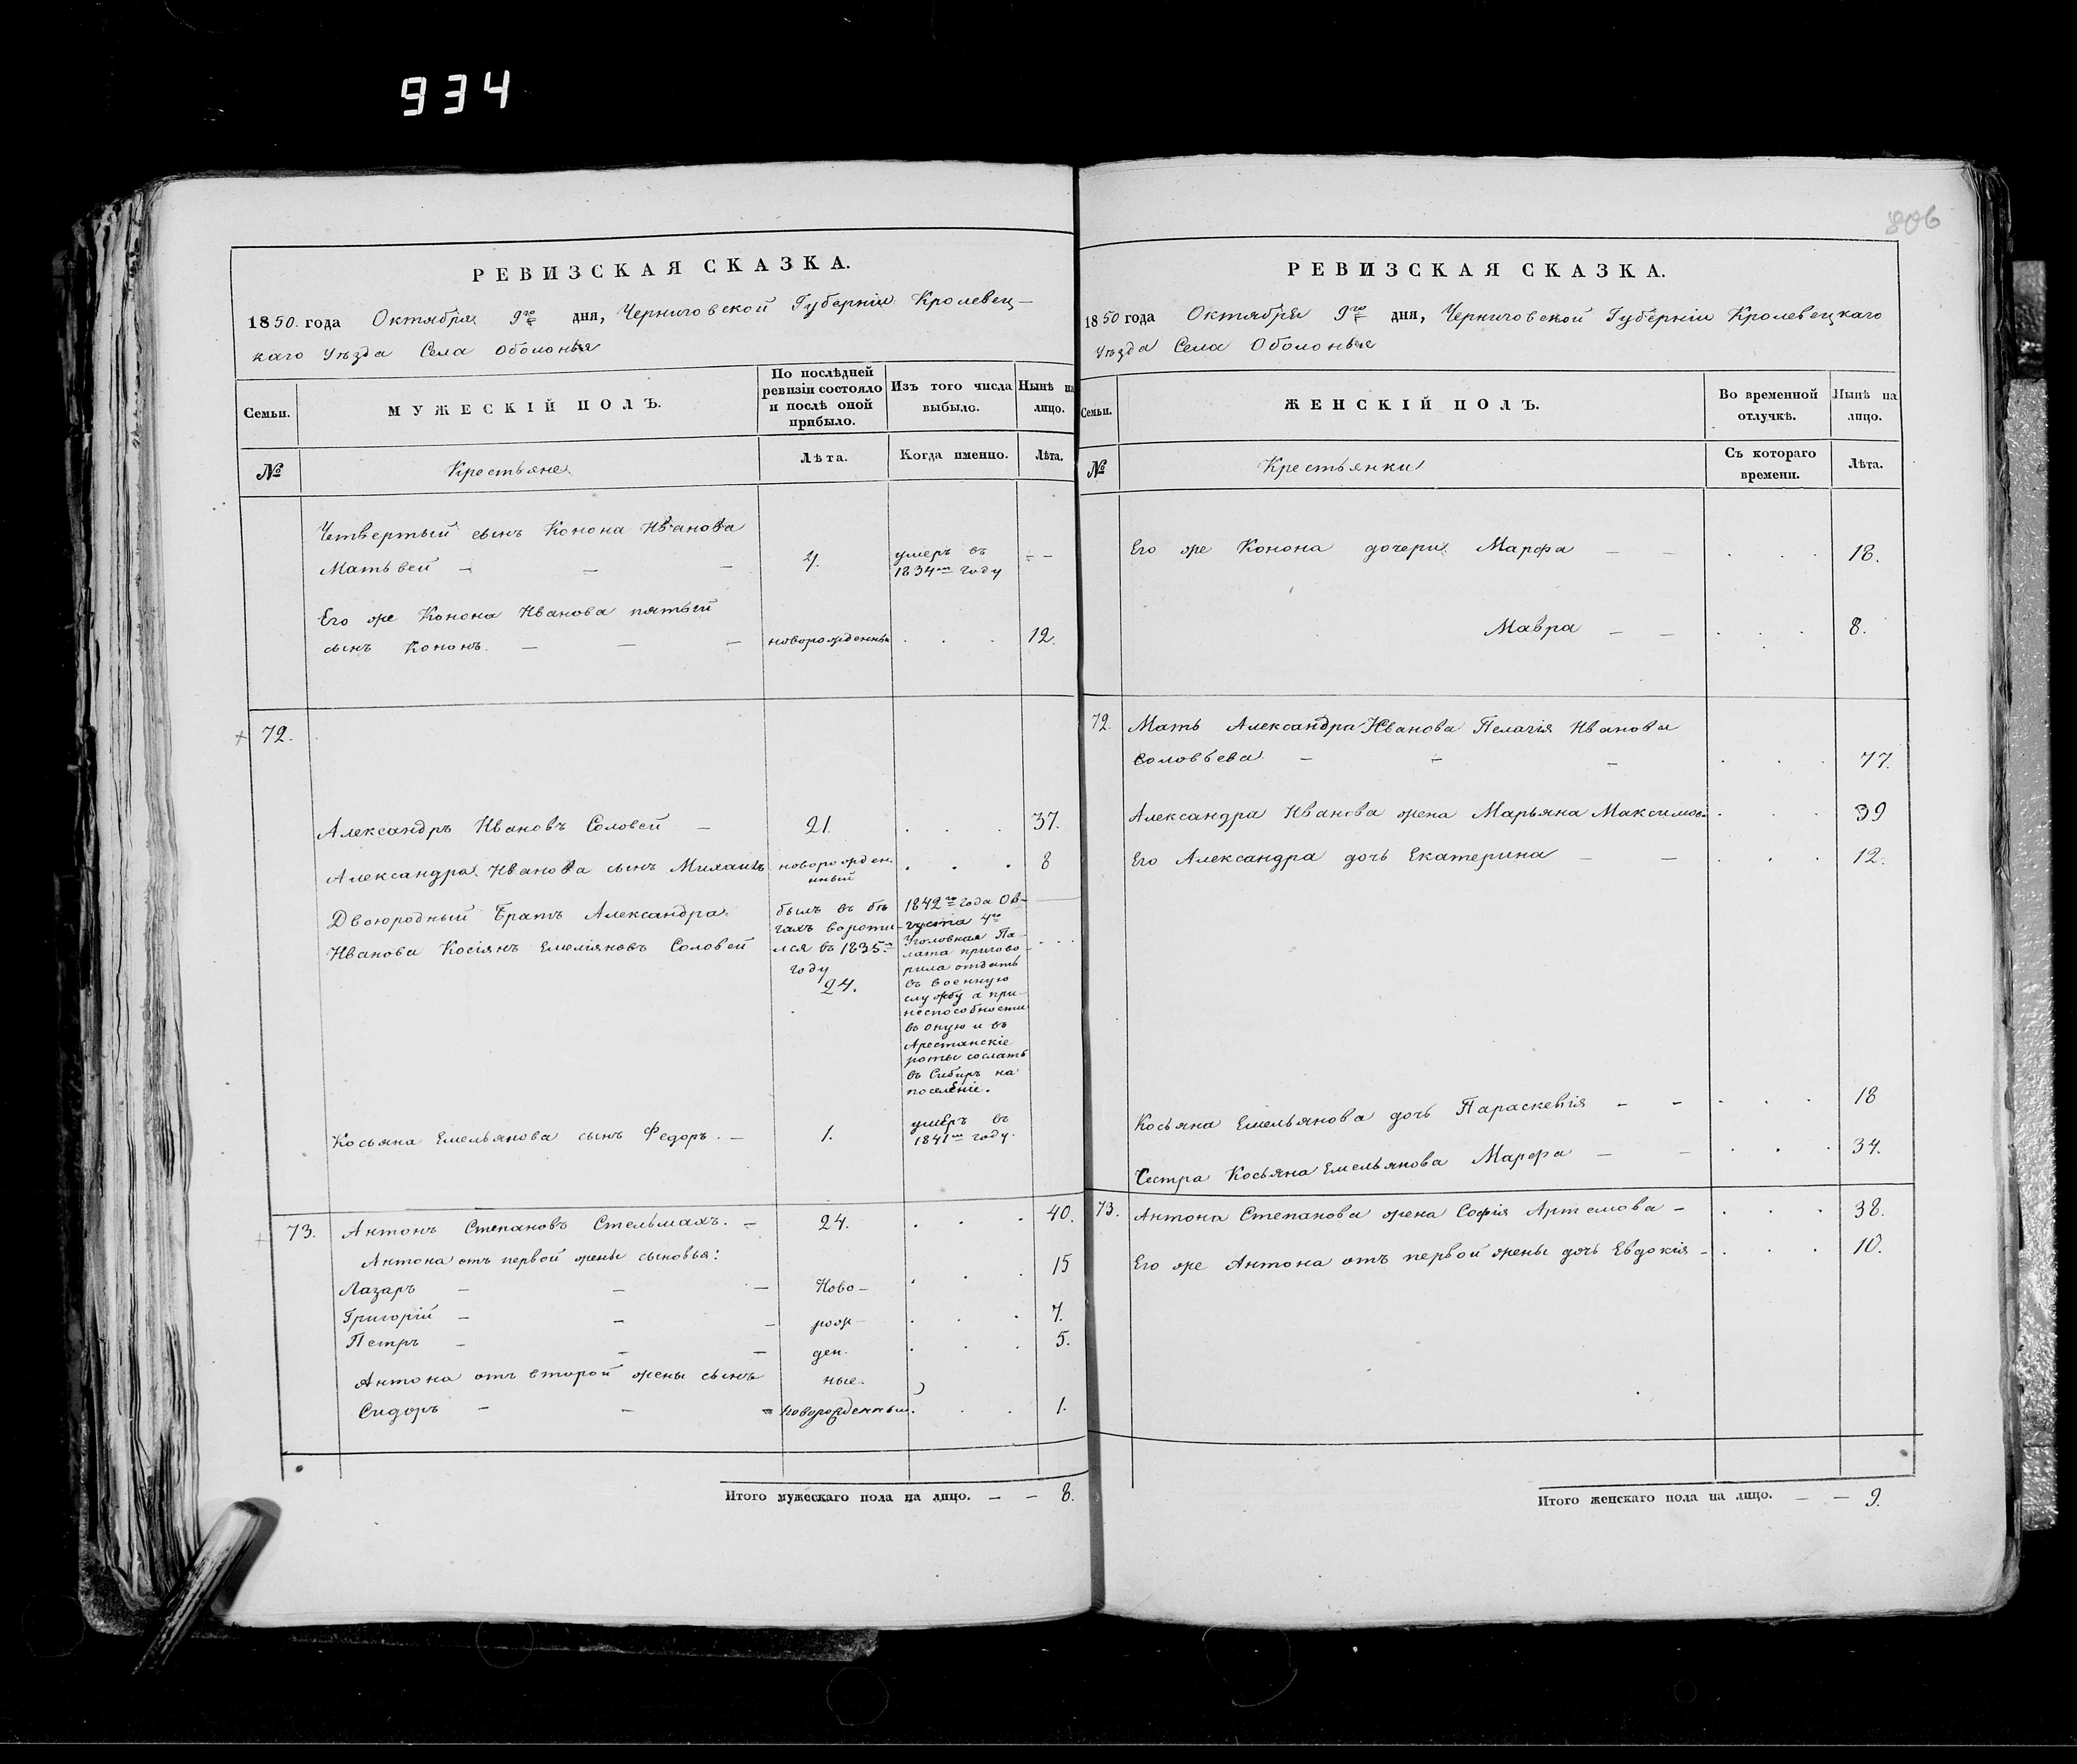 934
806
РЕВИЗСКАЯ СКАЗКА.
1850. года Октября 9го дня, Черниговской Губерніи Кролевец-
каго Уѣзда Села Оболонья
Семьи.
МУЖЕСКІЙ ПОЛЪ.
По послѣдней
ревизіи состояло
и послѣ оной
прибыло.
Изъ того числа
выбыло.
Нынѣ на
лицо.
№
Крестьяне
Лѣта.
Когда именно.
Лѣта.
Четвертый сынъ Конона Иванова
Матьвей - - - 4. умеръ въ - -
1834мъ году
Его же Конона Иванова пятый
сынъ Кононъ. - - - новорожденный . . . 12.
72.
Александръ Ивановъ Соловей - 21. . . . 37.
Александра Иванова сынъ Михаилъ новорожден- . . . 8
ный
Двоюродный братъ Александра
Иванова Косіянъ Емеліяновъ Соловей
былъ въ бѣ
гахъ вороти-
лся въ 1835м
году
24.
1842го года Ав-
густа 4го
Уголовная Па-
лата пригово-
рила отдать
въ военную
службу а при
неспособности
въ оную и въ
Арестанскіе
роты сослать
въ Сибирь на
поселеніе.
Косьяна Емельянова сынъ Федоръ. - 1. умеръ въ
1841мъ году.
73. Антонъ Степановъ Стельмахъ. - 24. . . . 40.
Антона отъ первой жены сыновья:
Лазаръ - - - Ново- . . . 15
Григорій - - - рож- . . . 7.
Петръ - - - ден- . . . 5.
Антона отъ второй жены сынъ ные.
Сидоръ - - - новорожденный . . . 1.
Итого мужескаго пола на лицо. — — 8.
РЕВИЗСКАЯ СКАЗКА.
1850 года Октября 9го дня, Черниговской Губерніи Кролевецкаго
Уѣзда Села Оболонья
Семьи.
ЖЕНСКІЙ ПОЛЪ.
Во временной
отлучкѣ.
Нынѣ на
лицо.
№
Крестьянки
Съ котораго
времени.
Лѣта.
Его же Конона дочери Марфа - - . . . 18.
Мавра - - . . . 8.
72. Мать Александра Иванова Пелагія Иванова
Соловьева - - - . . . 77.
Александра Иванова жена Марьяна Максимов. . . . 39
Его Александра дочь Екатерина - - . . . 12.
Косьяна Емельянова дочь Параскевія - - . . . 18
Сестра Косьяна Емельянова Марфа - - . . . 34.
73. Антона Степанова жена Софія Артемова - . . . 38.
Его же Антона отъ первой жены дочь Евдокія - . . . 10.
Итого женскаго пола на лицо. — — 9.